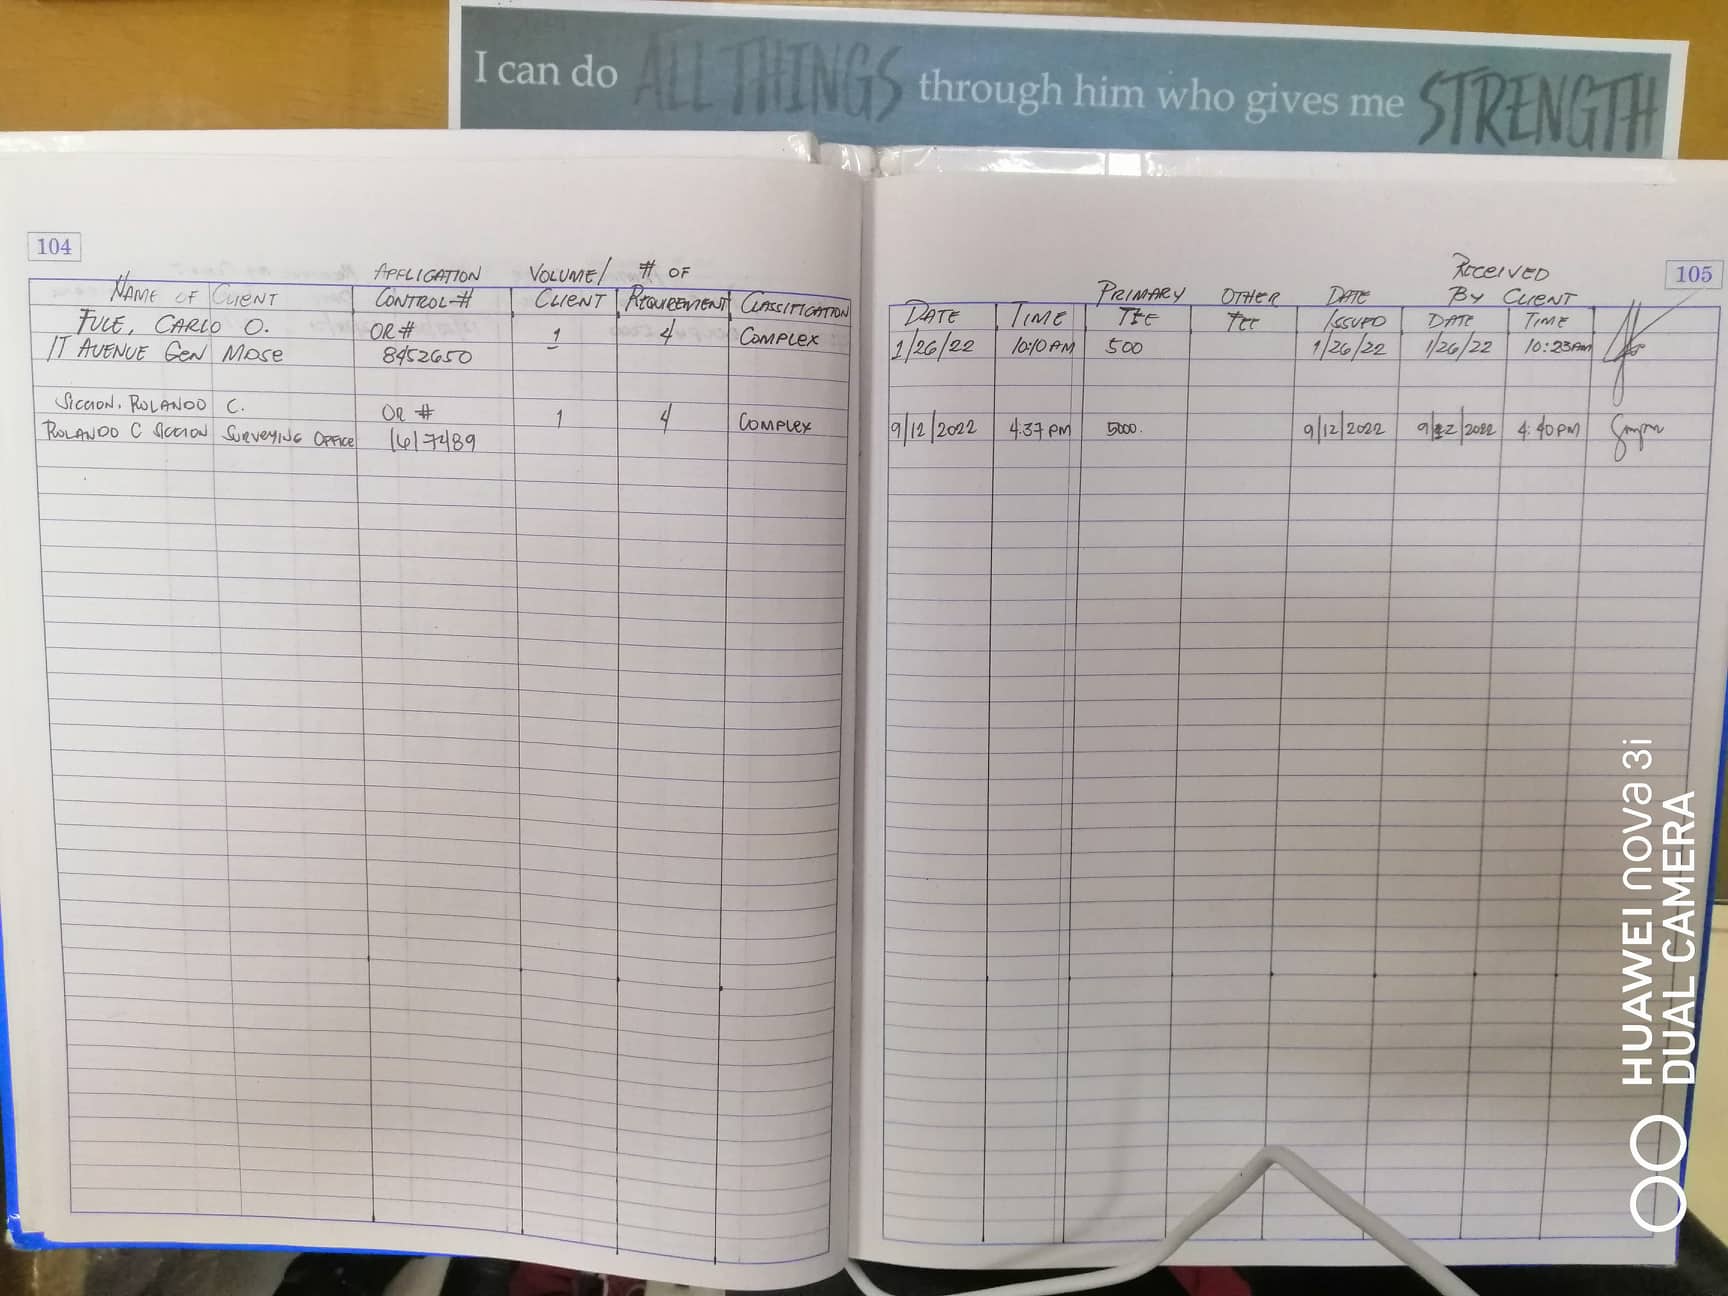 I can do ALL THINGS through him who gives me STRENGTH
104
APPLICATION VOLUME/ # OF
NAME OF CLIENT CONTROL # CLIENT REQUIREMENT CLASSIFICATION
FULE, CARLO O. OR # 1 4 COMPLEX
IT AVENUE GEN MDSE 8452650
SICCION, ROLANDO C. OR # 1 4 COMPLEX
ROLANDO C SICCION SURVEYING OFFICE 1617489
RECEIVED 105
PRIMARY OTHER DATE BY CLIENT
DATE TIME FEE FEE ISSUED DATE TIME
1/26/22 10:10 AM 500 1/26/22 1/26/22 10:23AM
9/12/2022 4:37 PM 5000. 9/12/2022 9/12/2022 4:40PM
HUAWEI nova 3i
DUAL CAMERA